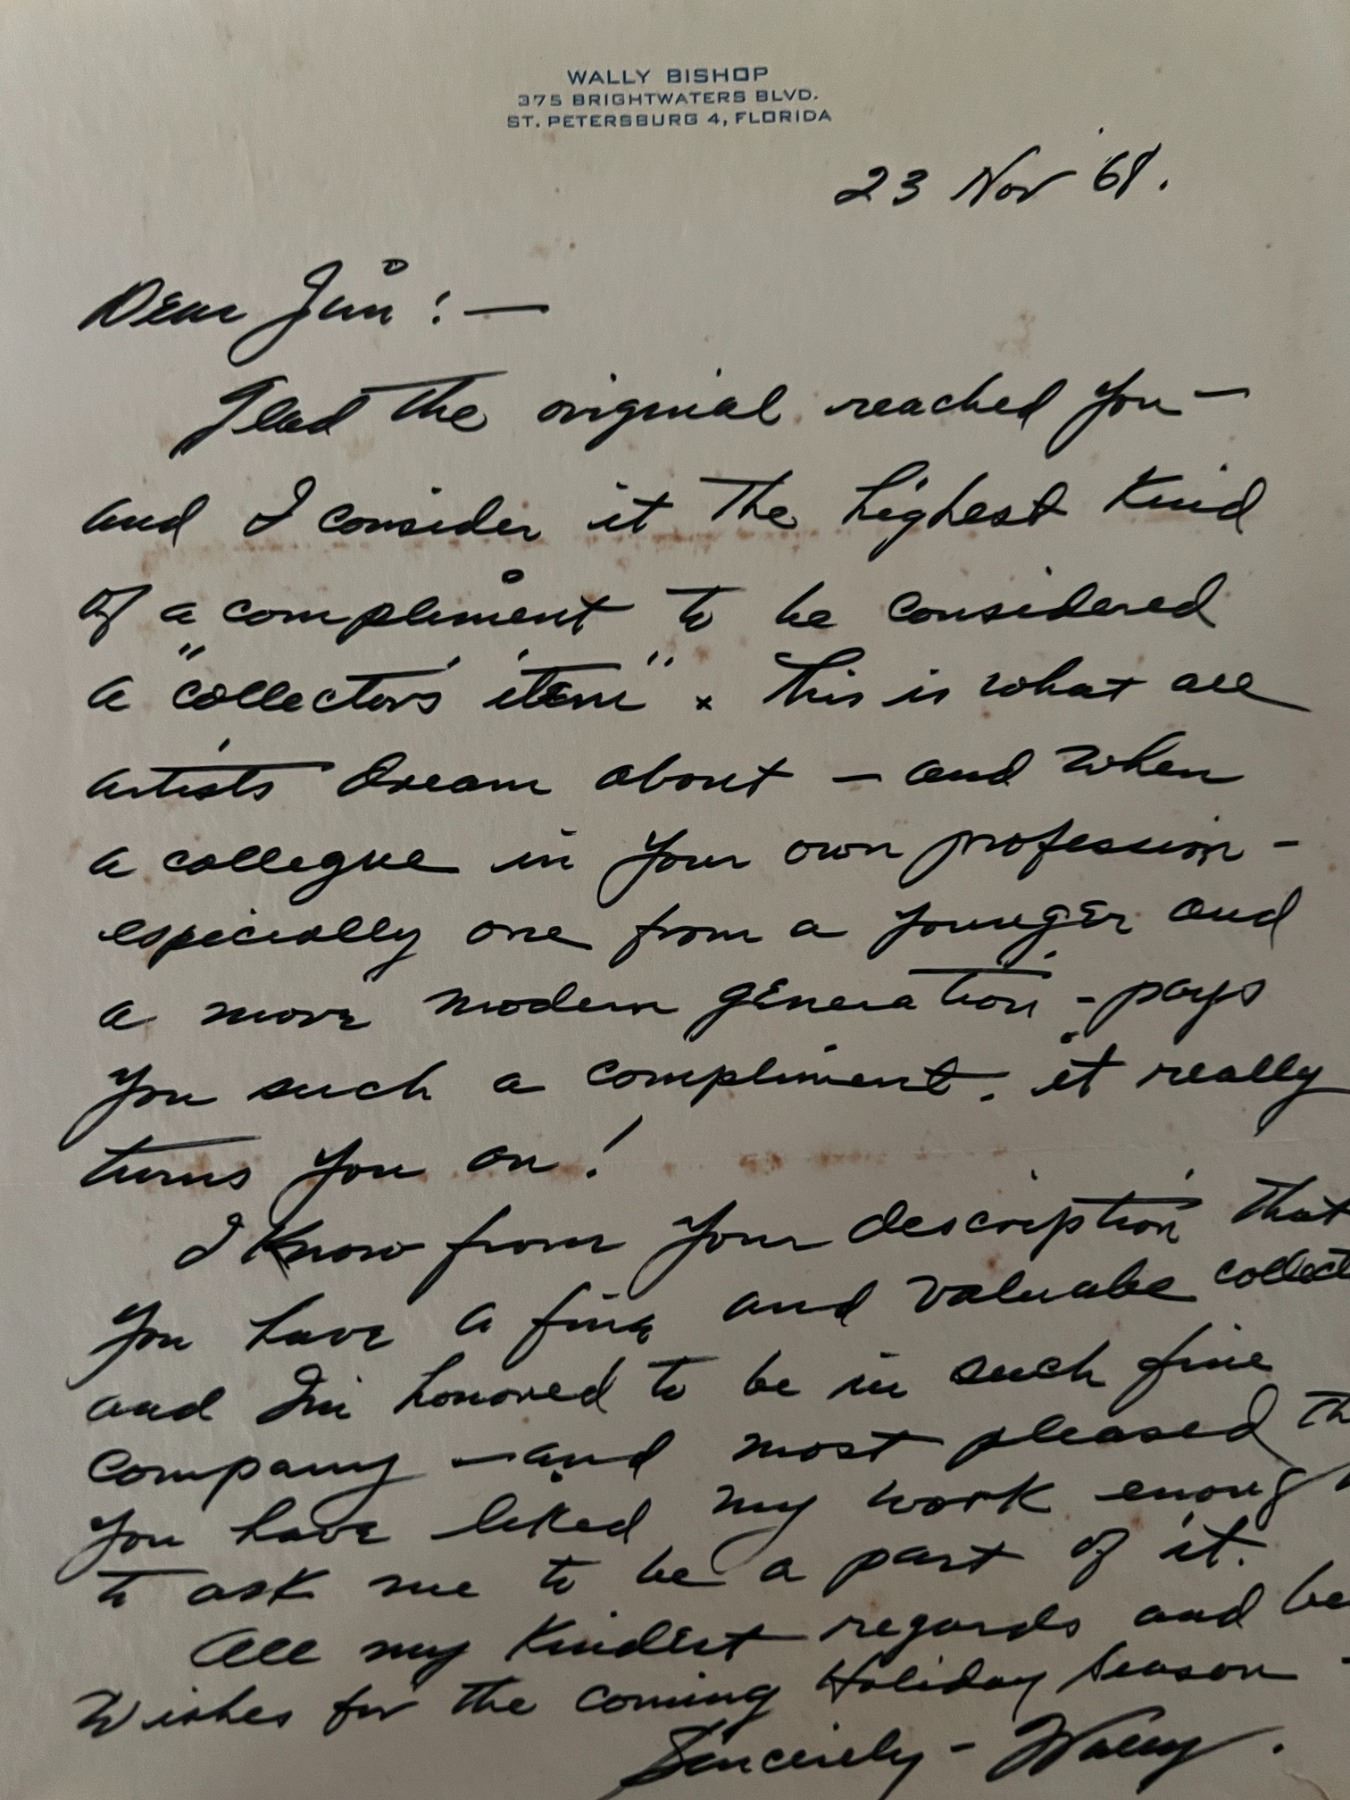 WALLY BISHOP
375 BRIGHTWATERS BLVD.
ST. PETERSBURG 4, FLORIDA
23 Nov '61.
Dear Jim: —
Glad the original reached you —
and I consider it the highest kind
of a compliment to be considered
a "collectors' item" x This is what all
artists dream about — and when
a collegue in your own profession -
especially one from a younger and
a more modern generation - pays
you such a compliment, it really
turns you on!
I know from your description that
you have a fine and valuabe collect
and I'm honored to be in such fine
company — and most pleased th
you have liked my work enoug
to ask me to be a part of it.
All my kindest regards and be
Wishes for the coming Holiday Season -
Sincerely - Wally.